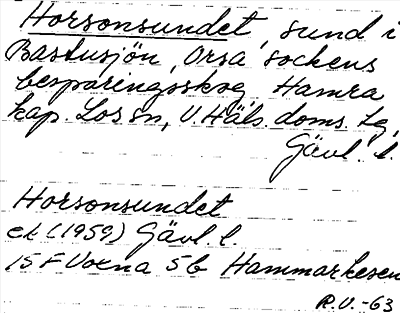 Horsonsundet, sund i
Bastusjön, Orsa sockens
besparingsskog, Hamra
kap. Los sn, V. Häls. doms. lg,
Gävl. l.
Horsonsundet
ek (1959) Gävl. l.
15 F Voxna 5b Hammarkesen
R.V. -63